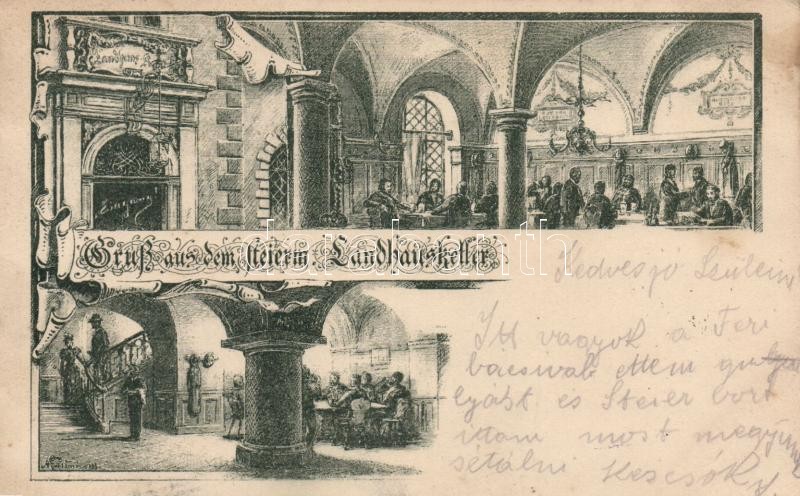 Landhaus-K
Eingang
Gruß aus dem steierm. Landhauskeller.
Kedves jó Szüleim
Itt vagyok a Feri
bácsival. Ettem
lyást és Steier bort
ittam most megyünk
sétálni